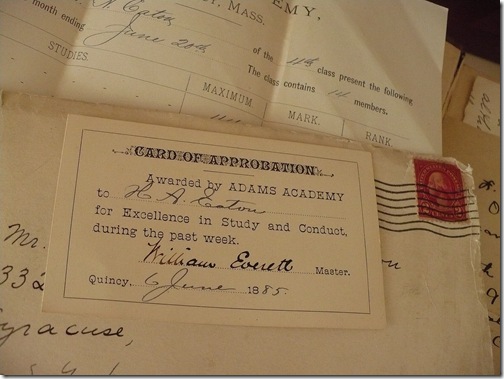 EMY,
CY, MASS.
H Eaton
month ending June 20th
of the 11th class present the following
The class contains 14 members.
STUDIES.
MAXIMUM.
MARK.
RANK.
CARD OF APPROBATION
Awarded by ADAMS ACADEMY
to H. A. Eaton
for Excellence in Study and Conduct,
during the past week.
William Everett Master.
Quincy, 6 June 1885.
Mr.
on
332
Syracuse,